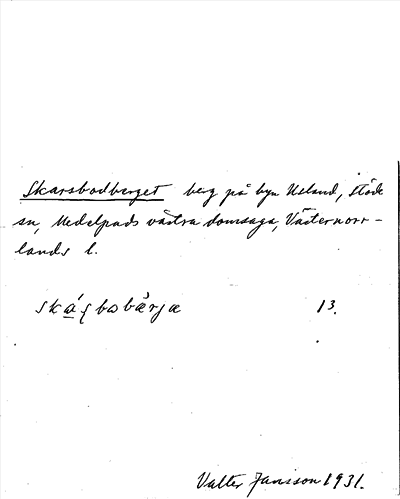 Skarsbodberget berg på byn Usland, Stöde
sn, Medelpads västra domsaga, Västernorr-
lands l.
skáʂbobærjæ 13.
Valter Jansson 1931.